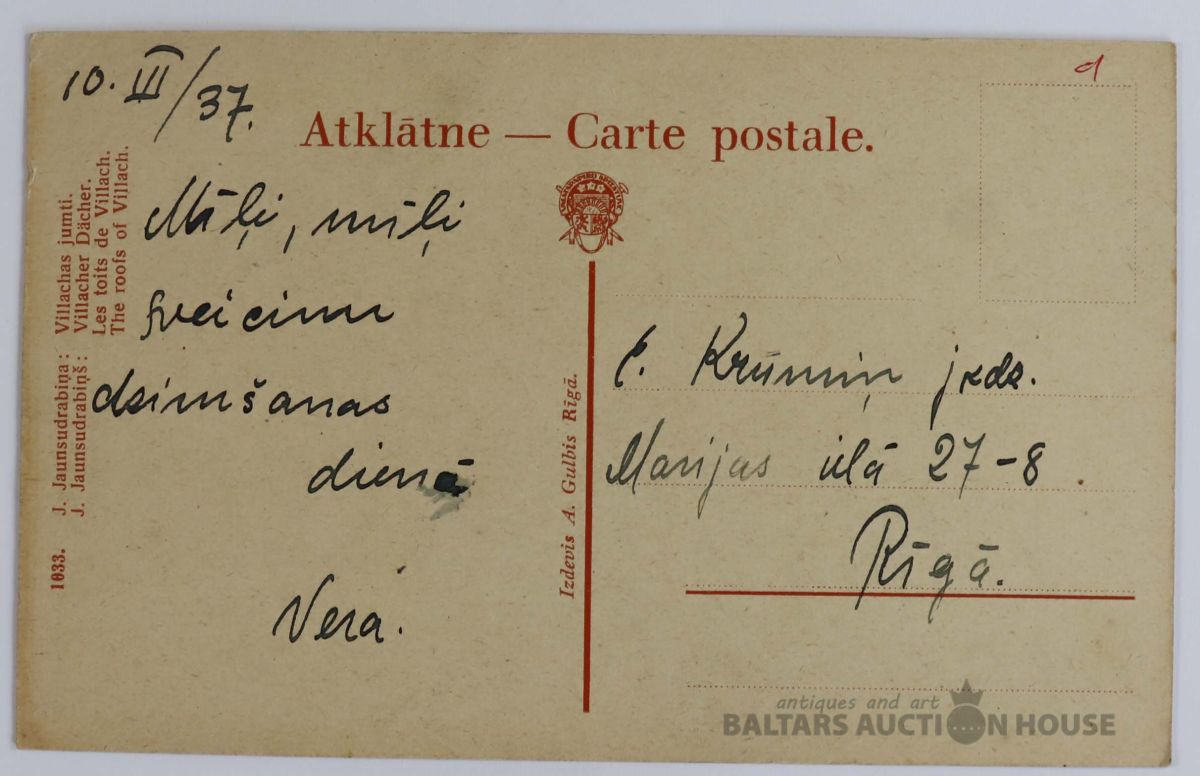 10. III/37.
Atklātne — Carte postale.
Mīļi, mīļi
sveicinu
dzimšanas
dienā
Vera.
E. Krūmiņ jkdz.
Marijas ielā 27-8
Rīgā.
1033. J. Jaunsudrabiņa: Villachas jumti.
J. Jaunsudrabiņš: Villacher Dächer.
Les toits de Villach.
The roofs of Villach.
Izdevis A. Gulbis Rīgā.
antiques and art
BALTARS AUCTION HOUSE